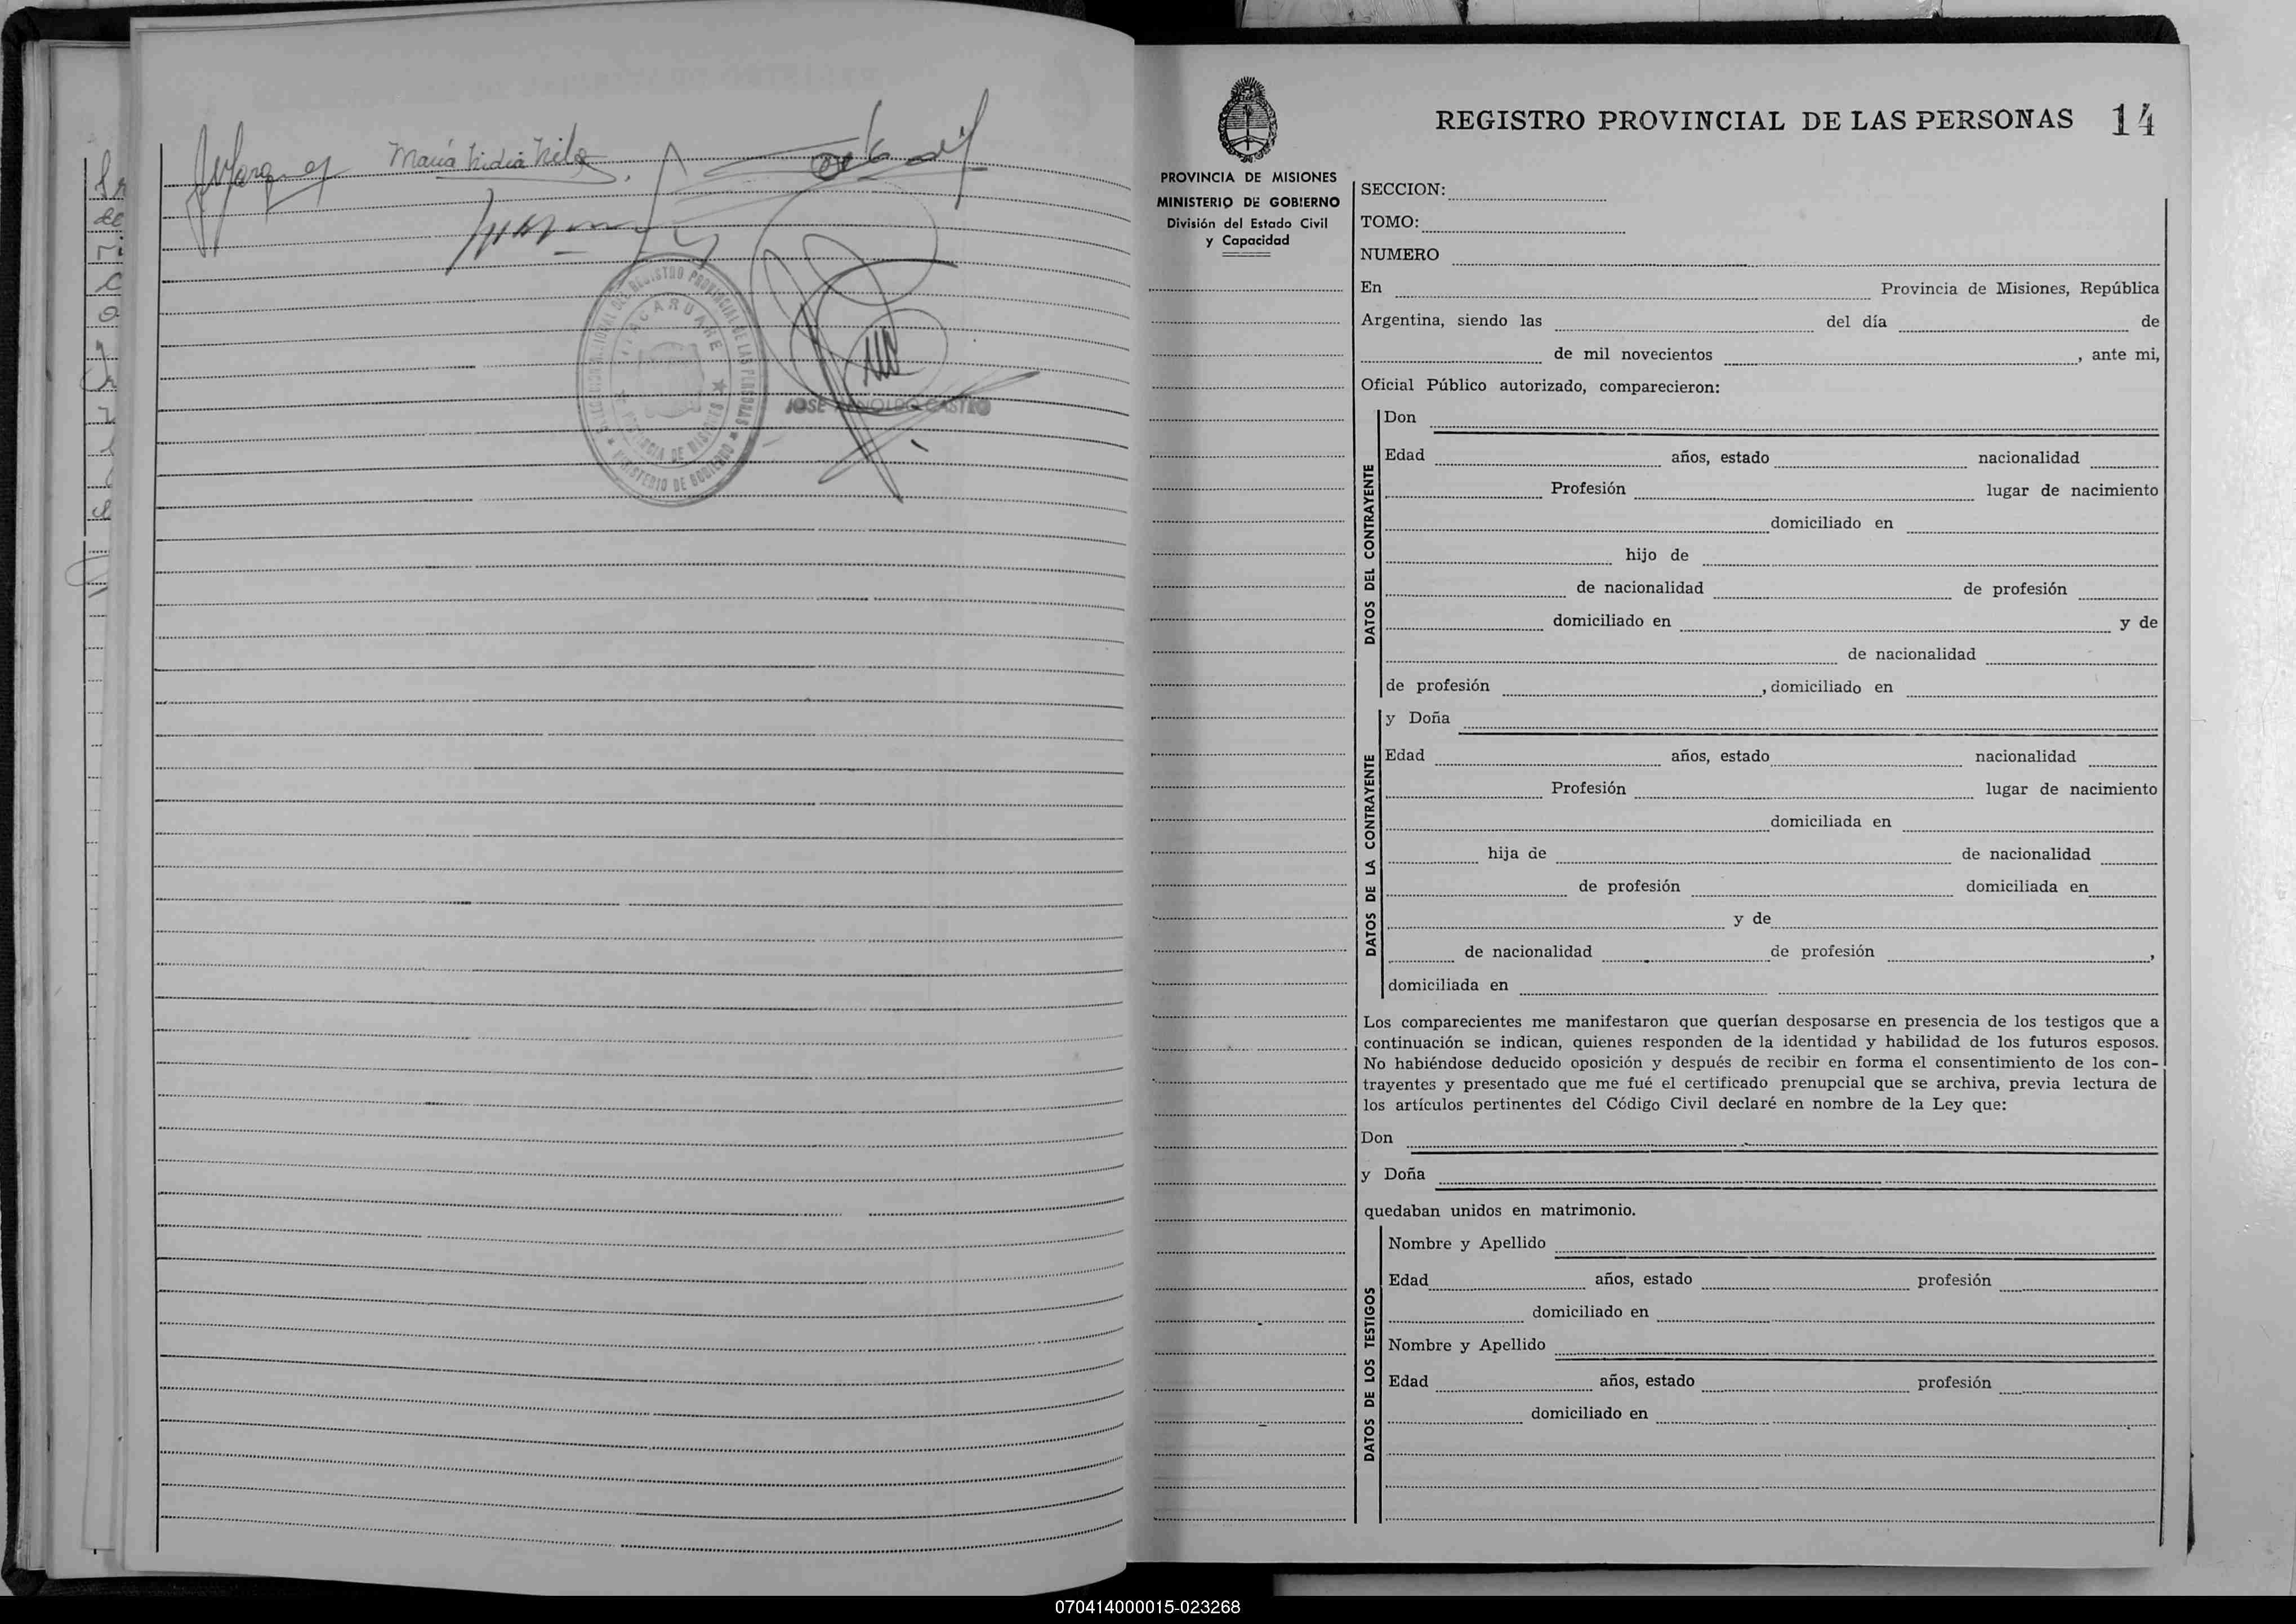 María Nidia
DELEGACION SECCIONAL DEL REGISTRO PROVINCIAL DE LAS PERSONAS
ITACARUARE
PROVINCIA DE MISIONES
MINISTERIO DE GOBIERNO
JOSE ARNOLDO CASTRO
REGISTRO PROVINCIAL DE LAS PERSONAS 14
PROVINCIA DE MISIONES
MINISTERIO DE GOBIERNO
División del Estado Civil
y Capacidad
SECCION:
TOMO:
NUMERO
En Provincia de Misiones, República
Argentina, siendo las del día de
de mil novecientos , ante mi,
Oficial Público autorizado, comparecieron:
DATOS DEL CONTRAYENTE
Don
Edad años, estado nacionalidad
Profesión lugar de nacimiento
domiciliado en
hijo de
de nacionalidad de profesión
domiciliado en y de
de nacionalidad
de profesión , domiciliado en
DATOS DE LA CONTRAYENTE
y Doña
Edad años, estado nacionalidad
Profesión lugar de nacimiento
domiciliada en
hija de de nacionalidad
de profesión domiciliada en
y de
de nacionalidad de profesión ,
domiciliada en
Los comparecientes me manifestaron que querían desposarse en presencia de los testigos que a
continuación se indican, quienes responden de la identidad y habilidad de los futuros esposos.
No habiéndose deducido oposición y después de recibir en forma el consentimiento de los con-
trayentes y presentado que me fué el certificado prenupcial que se archiva, previa lectura de
los artículos pertinentes del Código Civil declaré en nombre de la Ley que:
Don
y Doña
quedaban unidos en matrimonio.
DATOS DE LOS TESTIGOS
Nombre y Apellido
Edad años, estado profesión
domiciliado en
Nombre y Apellido
Edad años, estado profesión
domiciliado en
070414000015-023268